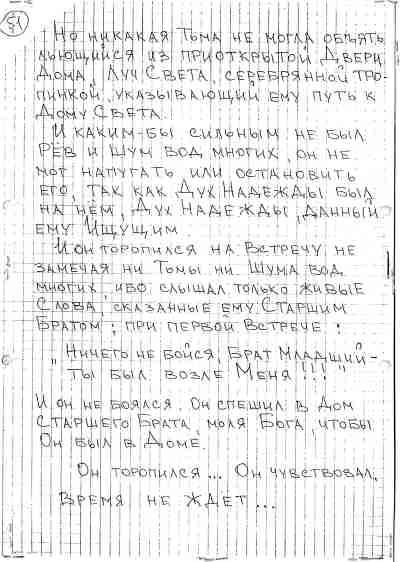 51
Но никакая Тьма не могла объять
льющийся из приоткрытой Двери
Дома, Луч Света, серебрянной тро-
пинкой, указывающий ему путь к
Дому Света.
И каким-бы сильным не был
Рёв и Шум вод многих, он не
мог напугать или остановить
его, так как Дух Надежды был
на нём, Дух Надежды, данный
ему Ищущим.
И он торопился на Встречу, не
замечая ни Тьмы ни Шума вод
многих, ибо слышал только живые
Слова, сказанные ему Старшим
Братом, при первой Встрече:
„Ничего не бойся, Брат Младший –
ты был возле Меня!!!"
И он не боялся. Он спешил в Дом
Старшего Брата, моля Бога, чтобы
Он был в Доме.
Он торопился... Он чувствовал,
Время не ждет...